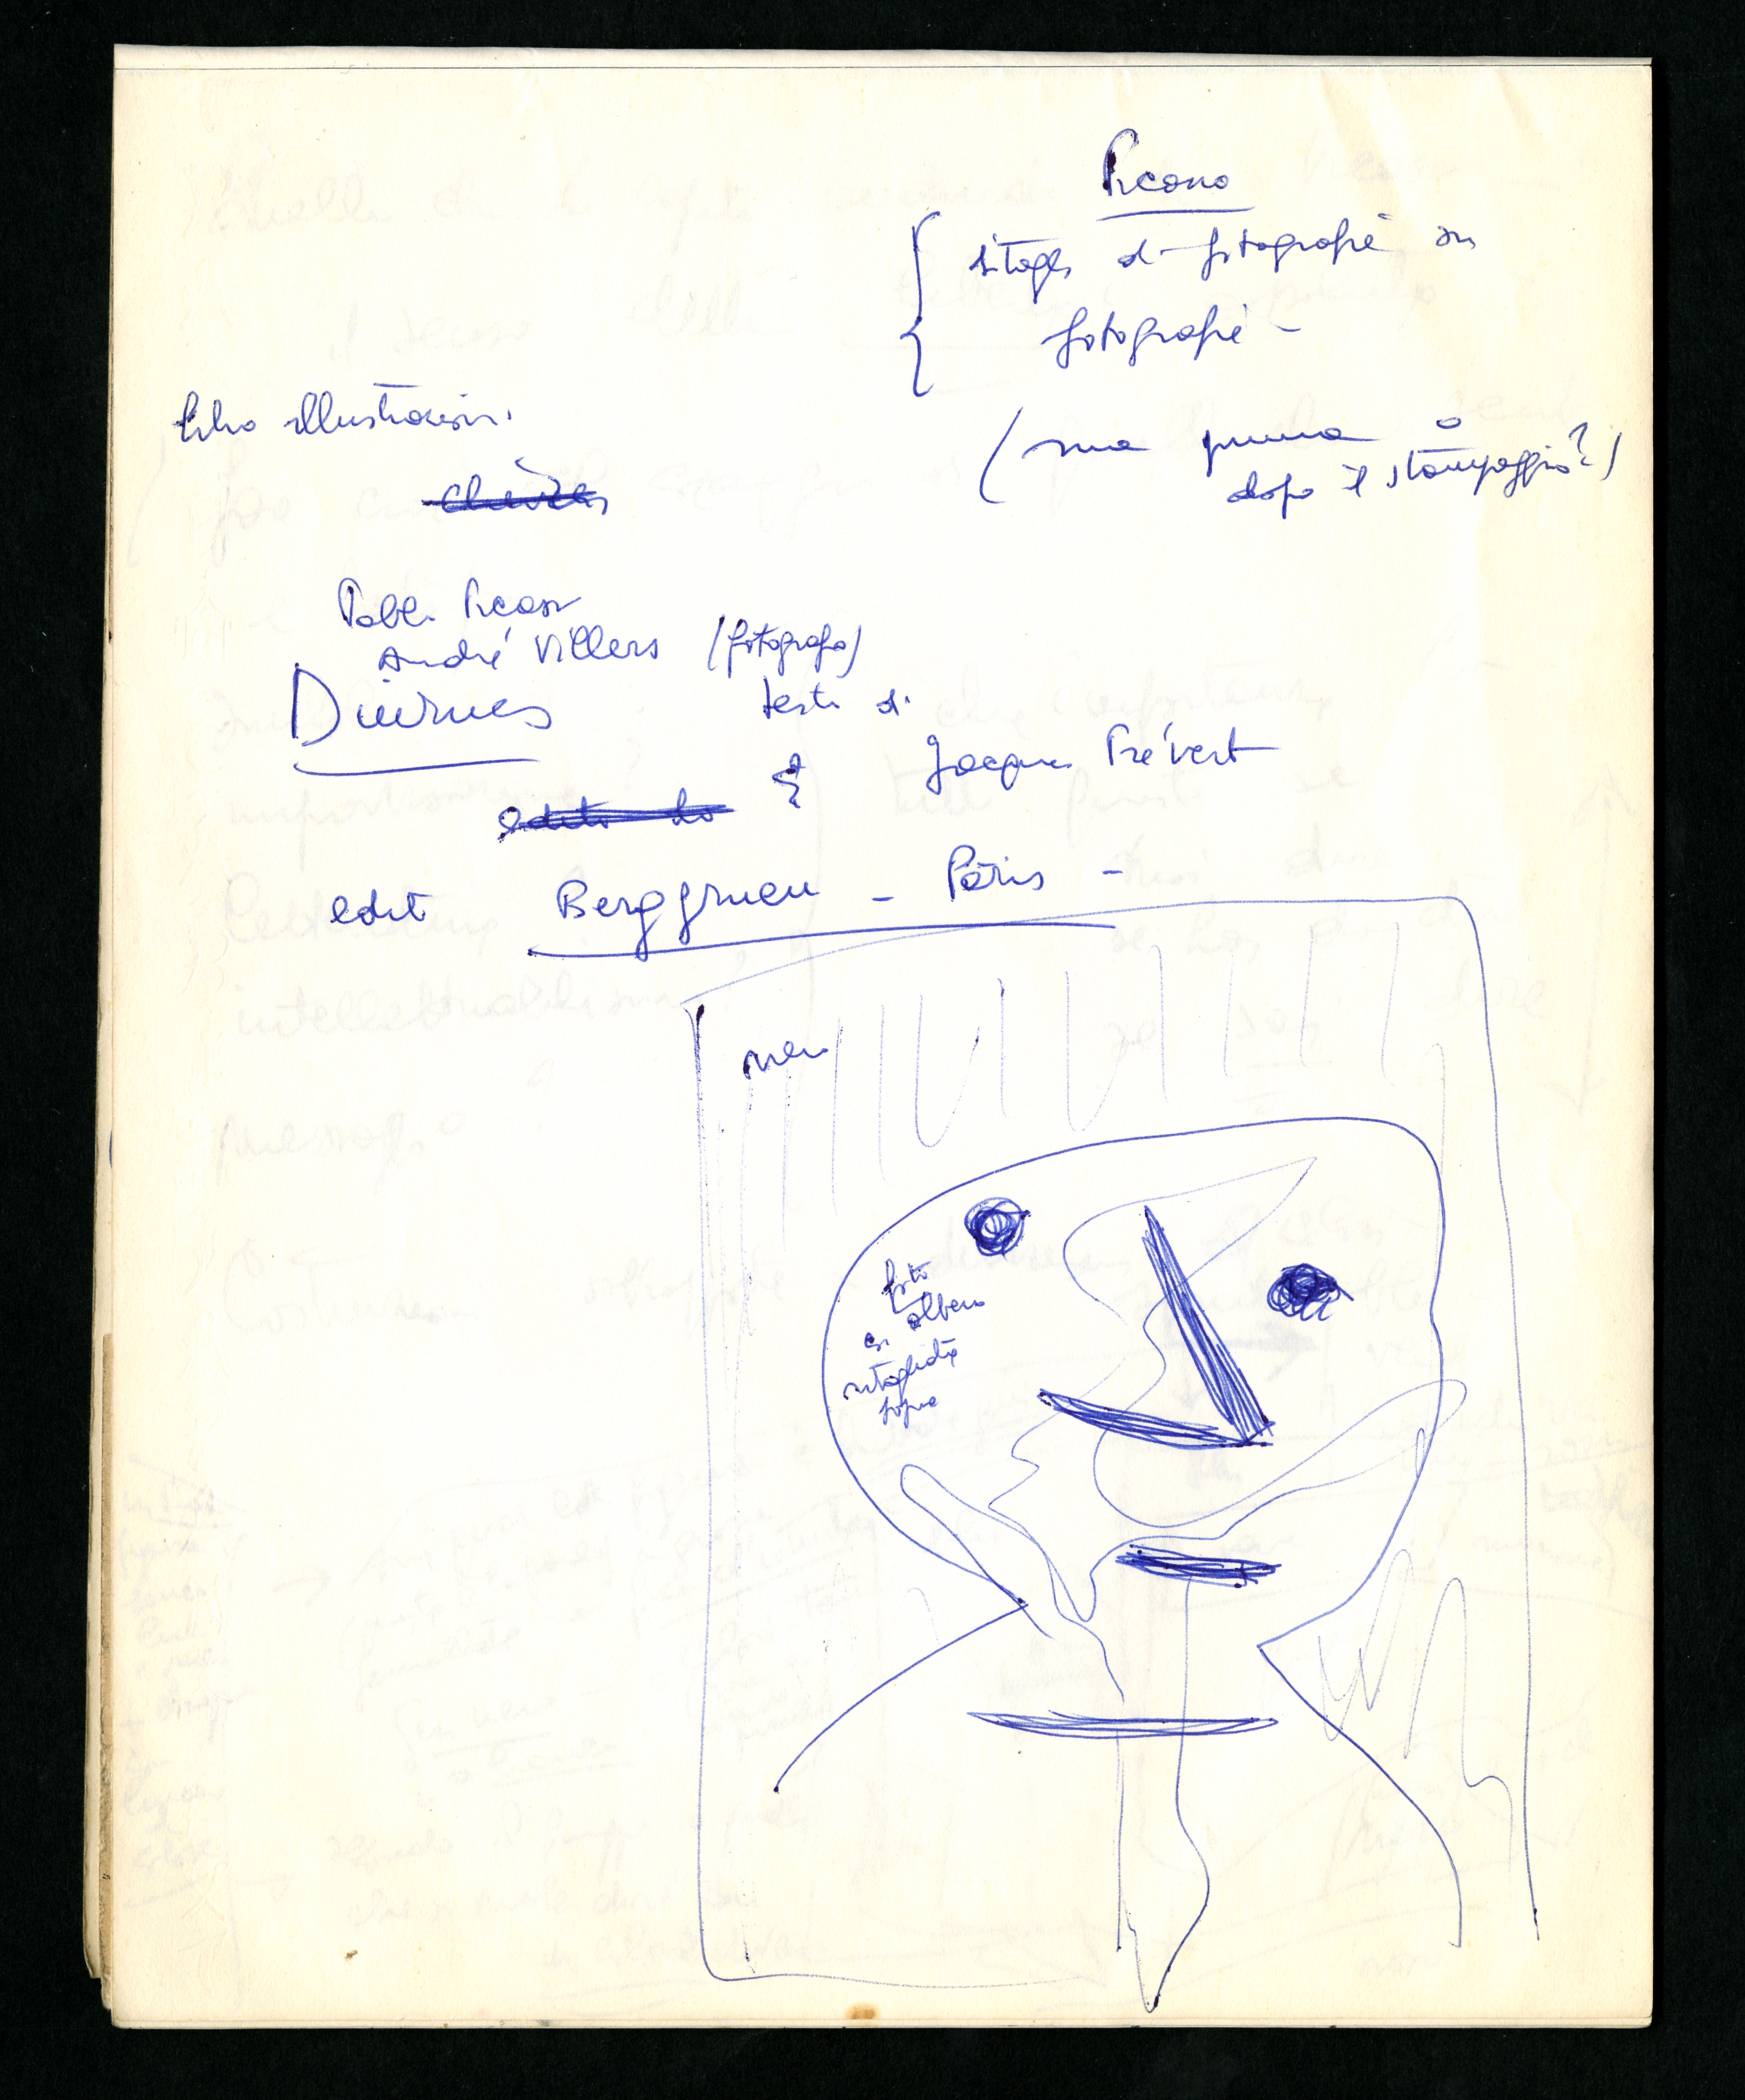 Picasso
ritagli di fotografie su
fotografie -
(ma prima o
dopo il stampaggio?)
libro illustrazioni.
Pablo Picasso
André Villers (fotografo)
Diurnes
testo di
Jacques Prévert
edito da
edit Berggruen - Paris -
nero
foto
albero
con
ritagliata
sopra